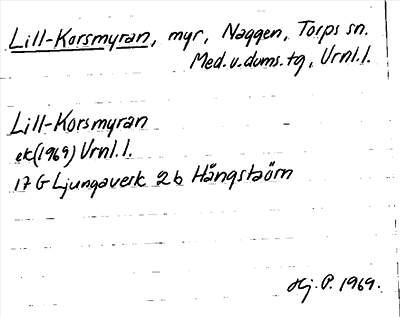 Lill-Korsmyran, myr, Naggen, Torps sn.
Med.v.doms.tg, Urnl.l.
Lill-Korsmyran
ek(1969) Urnl.l.
17 G Ljungaverk 2b Hångstaörn
Hj. P. 1969.